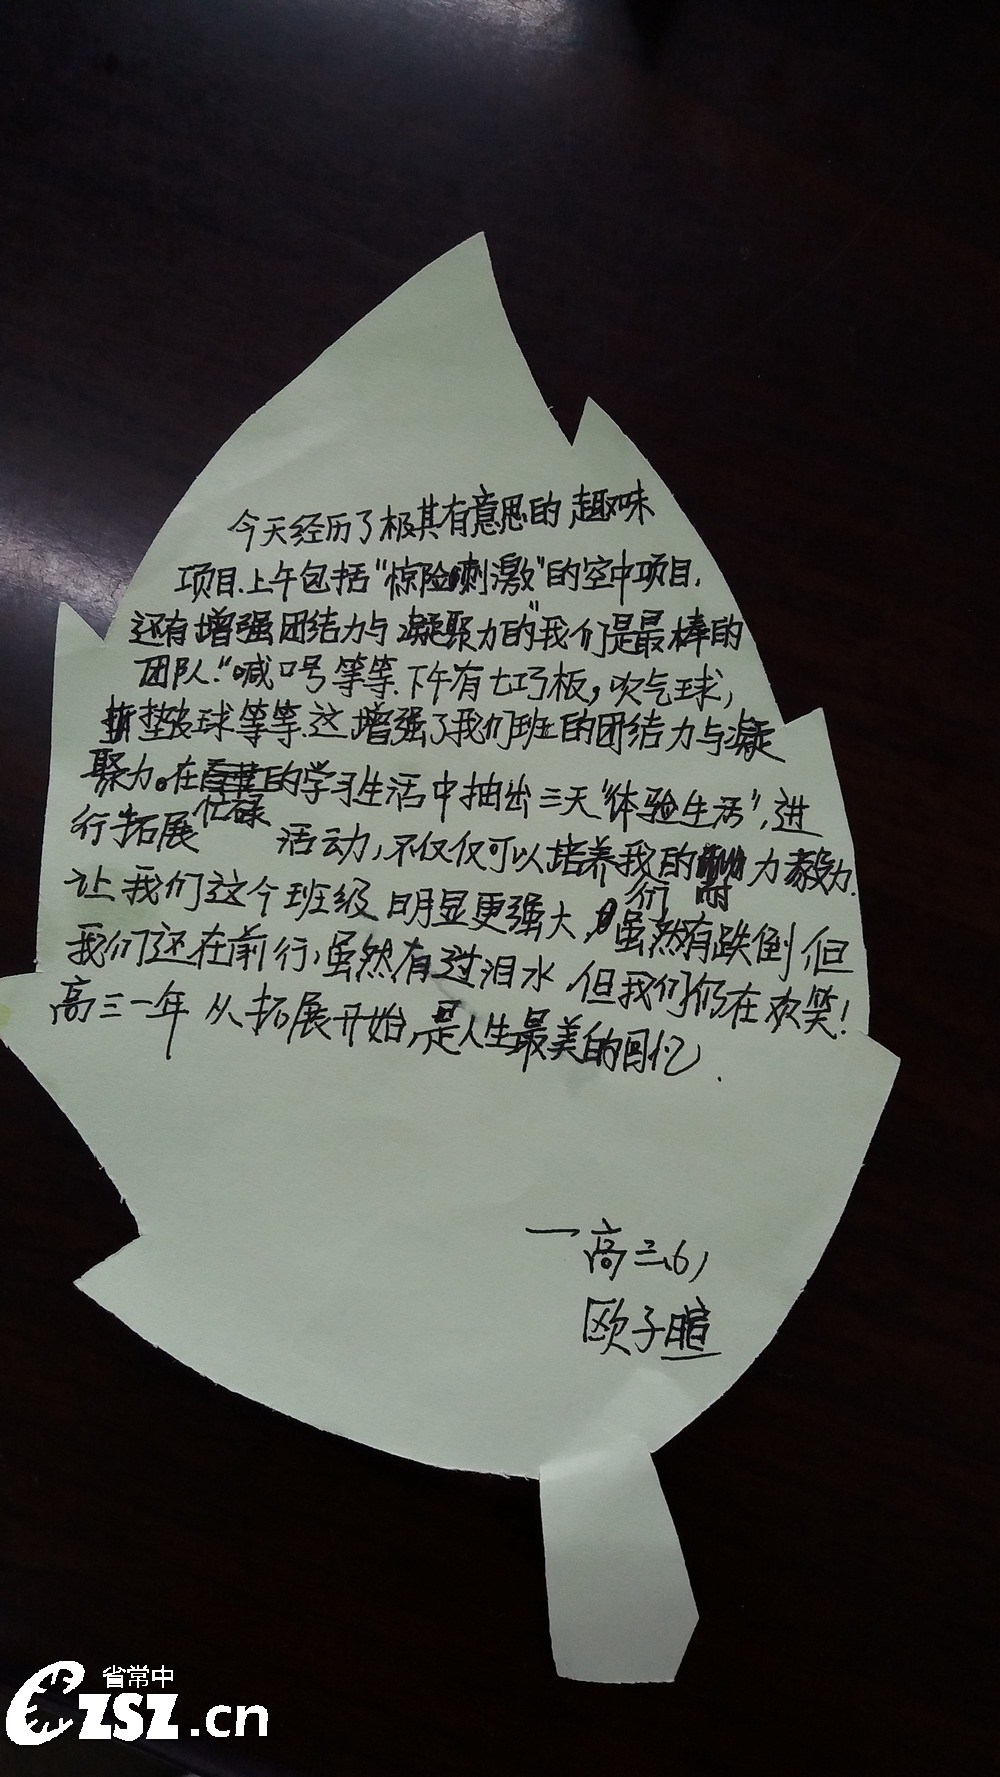 今天经历了极其有意思的趣味
项目.上午包括"惊险刺激"的空中项目.
还有增强团结力与凝聚力的"我们是最棒的
团队."喊口号等等.下午有七巧板,吹气球,
垫球等等.这增强了我们班的团结力与凝
聚力。在忙碌的学习生活中抽出三天"体验生活",进
行"拓展活动,不仅仅可以培养我们的耐力毅力.
让我们这个班级明显更强大,虽然有跌倒,但
我们还在前行,虽然有过泪水,但我们仍在欢笑!
高三一年从拓展开始,是人生最美的回忆.
一高三(6)
欧子暄
省常中
CZSZ.cn